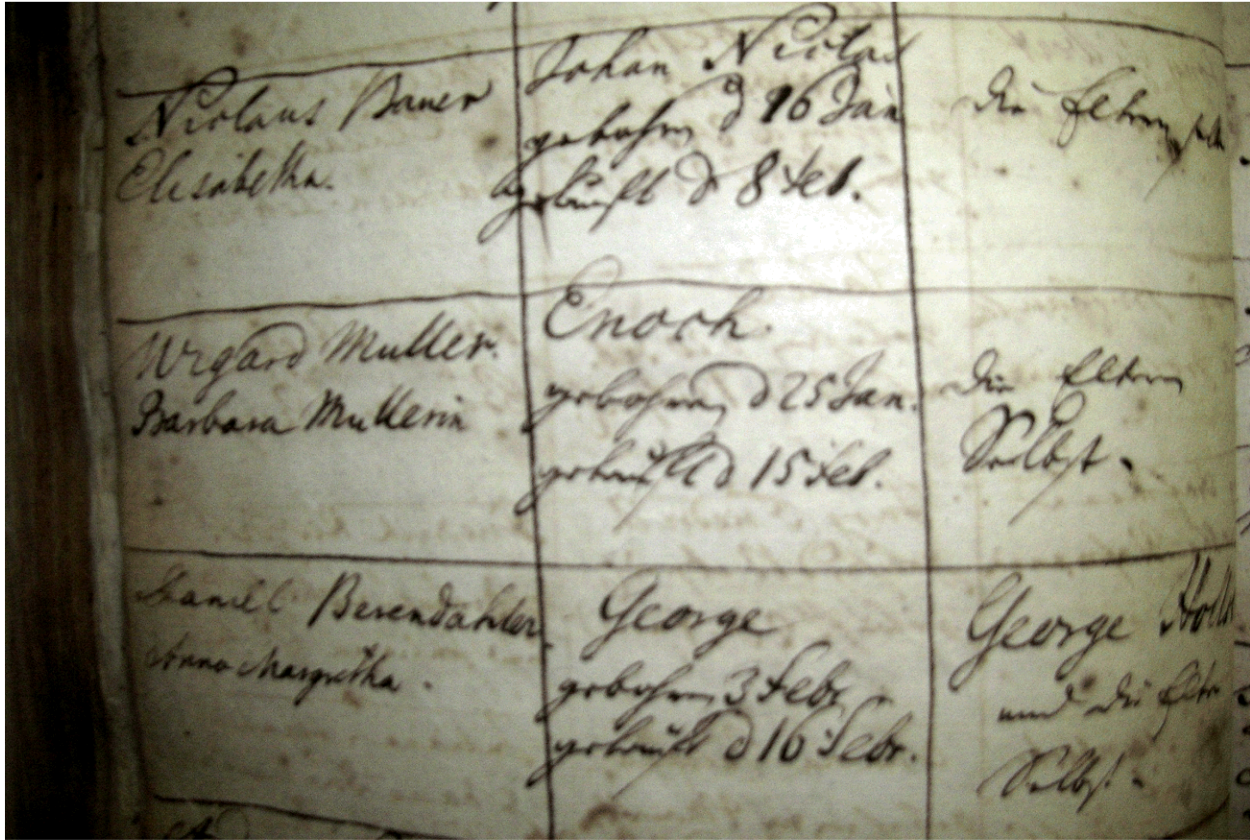 Nicolaus Bauer
Elisabetha.
Johan Nicolas
gebohren d 16 Jan
getauft d 8 Feb.
die Eltern
Wigard Muller.
Barbara Mullerin
Enoch.
gebohren d 25 Jan.
getauft d 15 Feb.
die Eltern
Selbst.
Daniel Berendahler
Anna Margretha.
George
gebohren 3 Febr
getauft d 16 Febr.
George
und die Elte
Selbst.